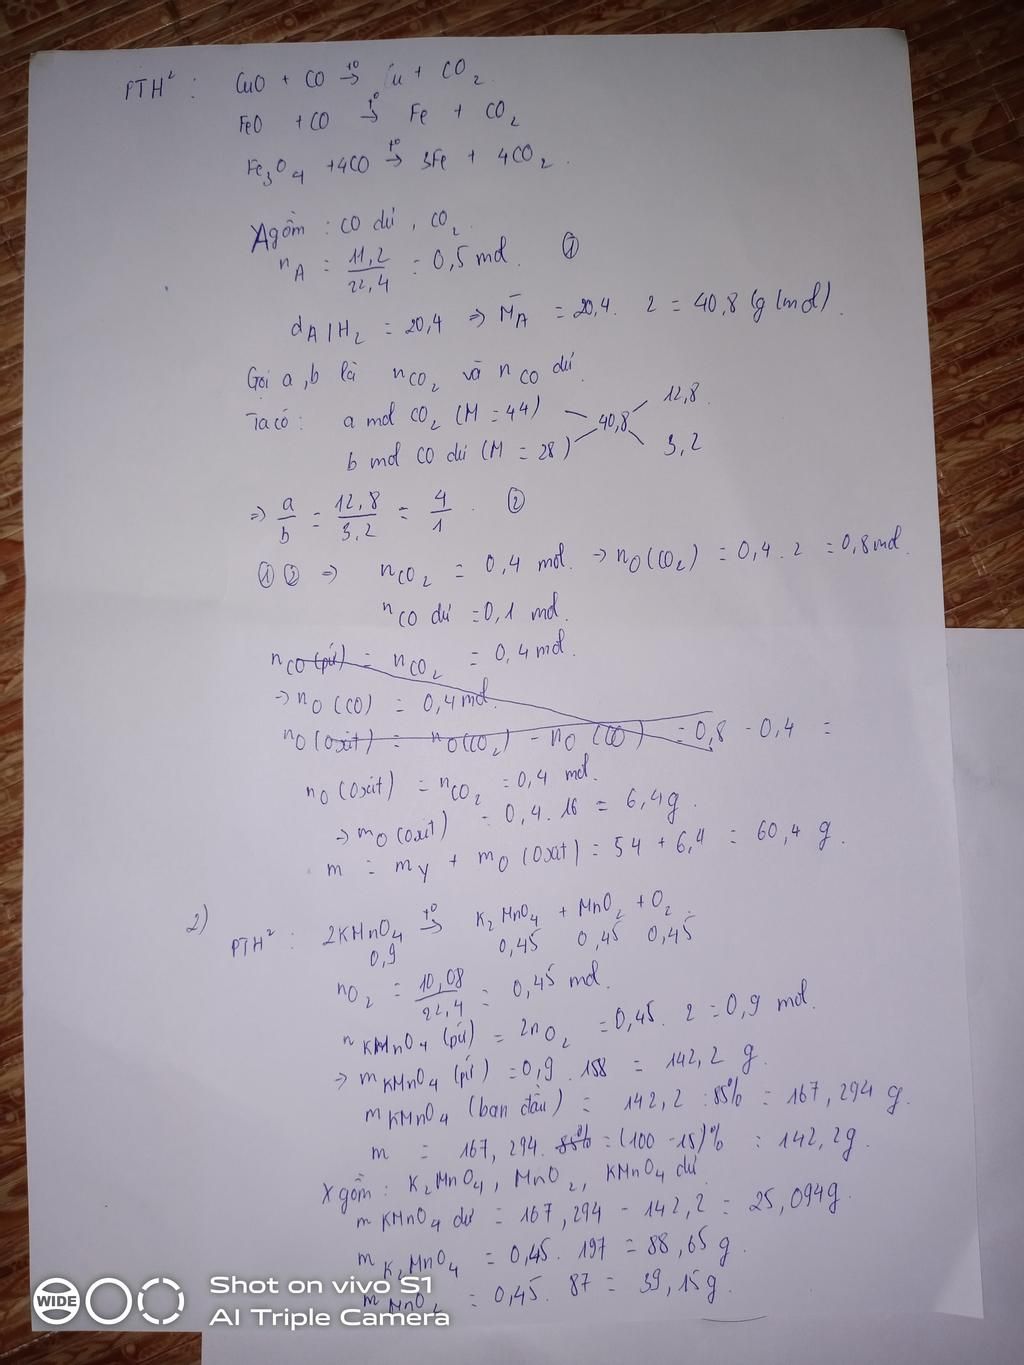 PTH² : CuO + CO t°→ Cu + CO₂
FeO + CO t°→ Fe + CO₂
Fe₃O₄ + 4CO t°→ 3Fe + 4CO₂.
A gồm : CO dư, CO₂.
n_A = 11,2/22,4 = 0,5 mol. ①
d_A|H₂ = 20,4 ⇒ M̄_A = 20,4. 2 = 40,8 (g/mol).
Gọi a, b là n_CO₂ và n_CO dư.
Ta có : a mol CO₂ (M = 44) 12,8.
40,8
b mol CO dư (M = 28) 3,2
⇒ a/b = 12,8/3,2 = 4/1. ②
① ② ⇒ n_CO₂ = 0,4 mol. → n_O(CO₂) = 0,4. 2 = 0,8 mol.
n_CO dư = 0,1 mol.
n_CO (pứ) = n_CO₂ = 0,4 mol.
→ n_O (CO) = 0,4 mol.
n_O (Oxit) = n_O(CO₂) - n_O (CO) = 0,8 - 0,4 =
n_O (Oxit) = n_CO₂ = 0,4 mol.
→ m_O (Oxit) = 0,4. 16 = 6,4g.
m = m_Y + m_O (Oxit) = 54 + 6,4 = 60,4 g.
2) PTH² : 2KMnO₄ t°→ K₂MnO₄ + MnO₂ + O₂.
0,9 0,45 0,45 0,45
n_O₂ = 10,08/22,4 = 0,45 mol.
n_KMnO₄ (pứ) = 2n_O₂ = 0,45. 2 = 0,9 mol.
⇒ m_KMnO₄ (pứ) = 0,9. 158 = 142,2 g.
m_KMnO₄ (ban đầu) = 142,2 : 85% = 167,294 g.
m = 167,294. 85% = (100 - 15)% = 142,2g.
X gồm : K₂MnO₄, MnO₂, KMnO₄ dư
m_KMnO₄ dư = 167,294 - 142,2 = 25,094g.
m_K₂MnO₄ = 0,45. 197 = 88,65 g.
m_MnO₂ = 0,45. 87 = 39,15g.
WIDE
Shot on vivo S1
AI Triple Camera